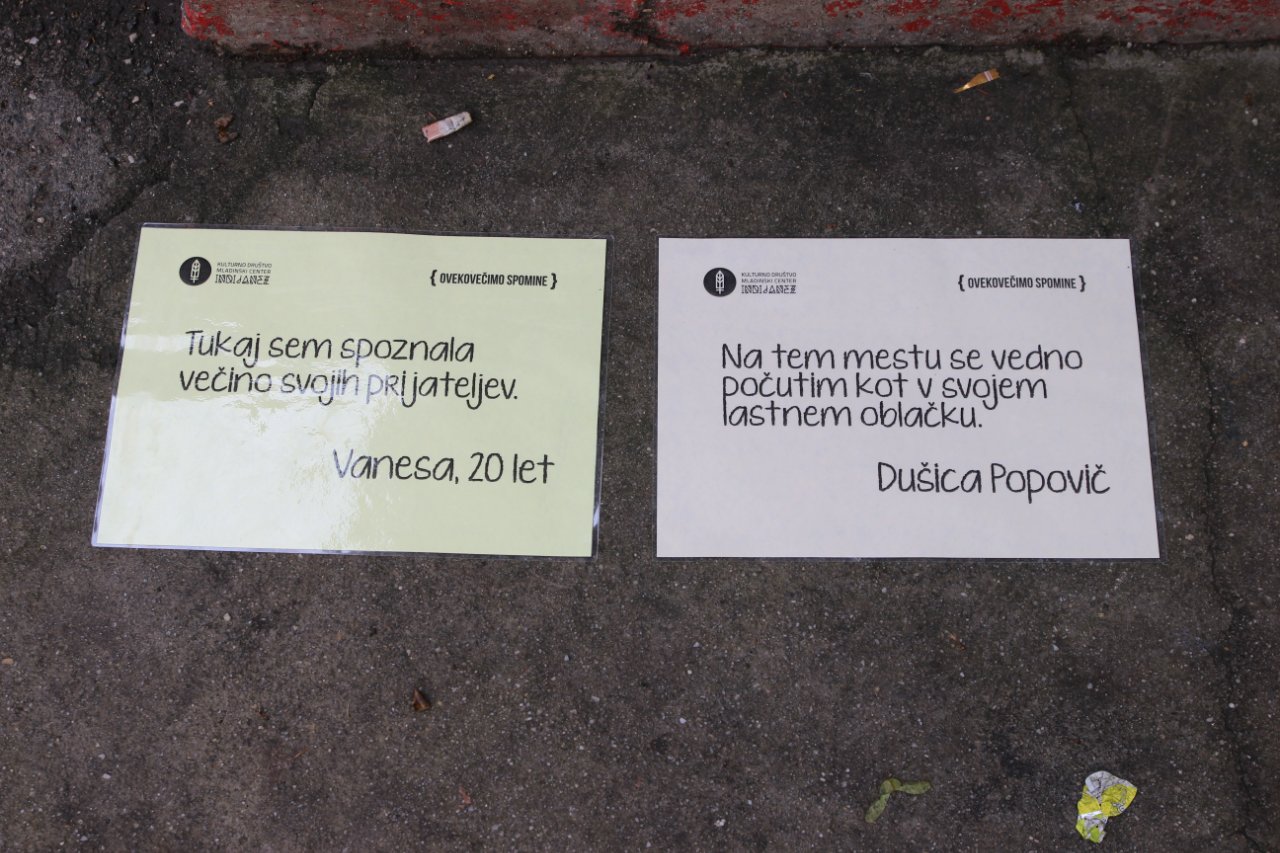 KULTURNO DRUŠTVO
MLADINSKI CENTER
INDIJANEZ
{ OVEKOVEČIMO SPOMINE }
Tukaj sem spoznala
večino svojih prijateljev.
Vanesa, 20 let
KULTURNO DRUŠTVO
MLADINSKI CENTER
INDIJANEZ
{ OVEKOVEČIMO SPOMINE }
Na tem mestu se vedno
počutim kot v svojem
lastnem oblačku.
Dušica Popovič